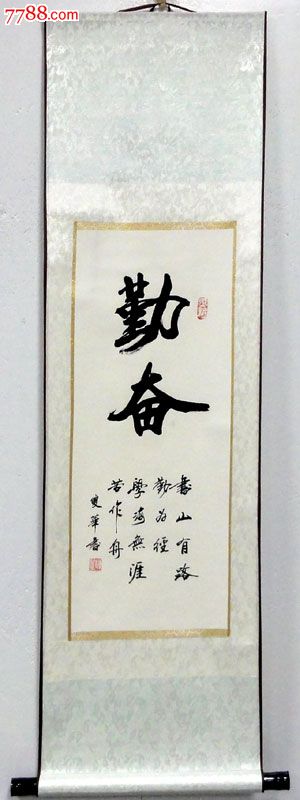 7788.com
勤奋
書山有路
勤为徑
學海無涯
苦作舟
華書